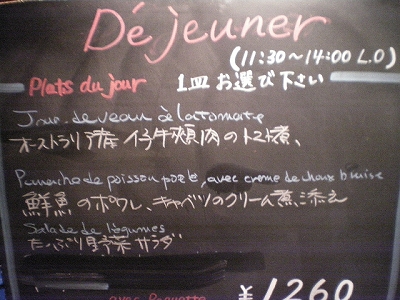 Déjeuner
(11:30~14:00 L.O)
Plats du jour 1皿お選び下さい
Joue de veau à la tomate
オーストラリア産 仔牛頬肉のトマト煮、
de poisson poelé, avec creme de choux
鮮魚のポワレ、キャベツのクリーム煮添え
Salade de légumes
たっぷり野菜サラダ
avec Baguette
¥1260